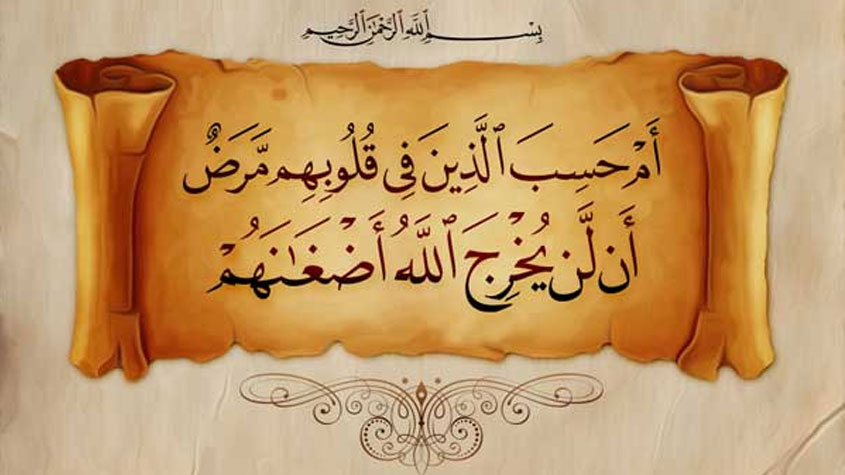 بِسْمِ ٱللَّهِ ٱلرَّحْمَٰنِ ٱلرَّحِيمِ
أَمْ حَسِبَ ٱلَّذِينَ فِى قُلُوبِهِم مَّرَضٌ
أَن لَّن يُخْرِجَ ٱللَّهُ أَضْغَٰنَهُمْ